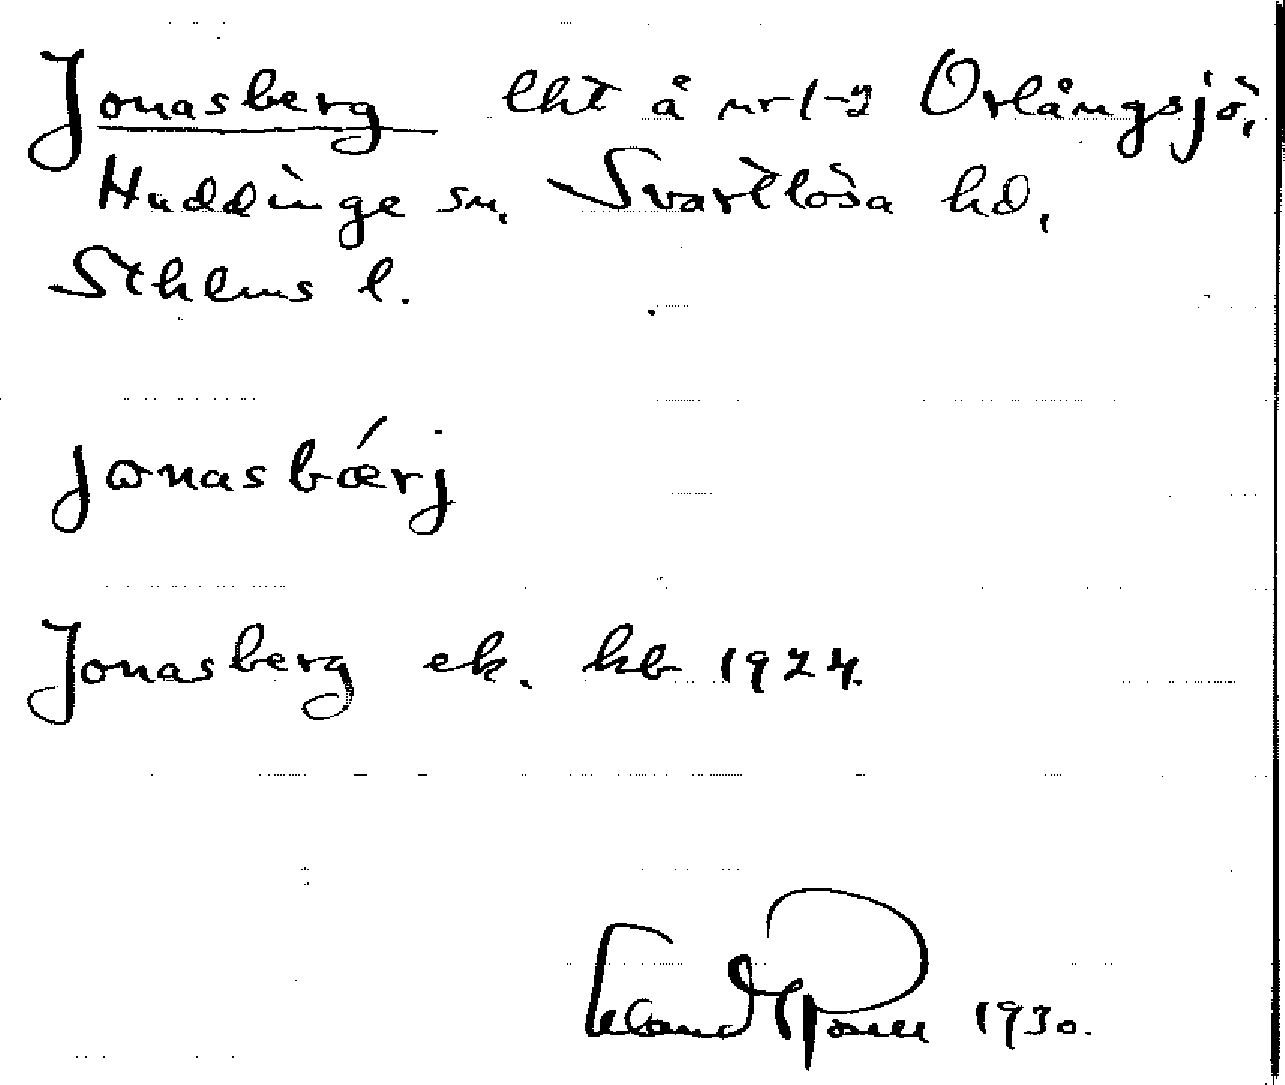 Jonasberg lht å nr 1-2 Orlångsjö,
Huddinge sn, Svartlösa hd,
Sthlms l.
jonasbǽrj
Jonasberg ek. kb 1924.
1930.